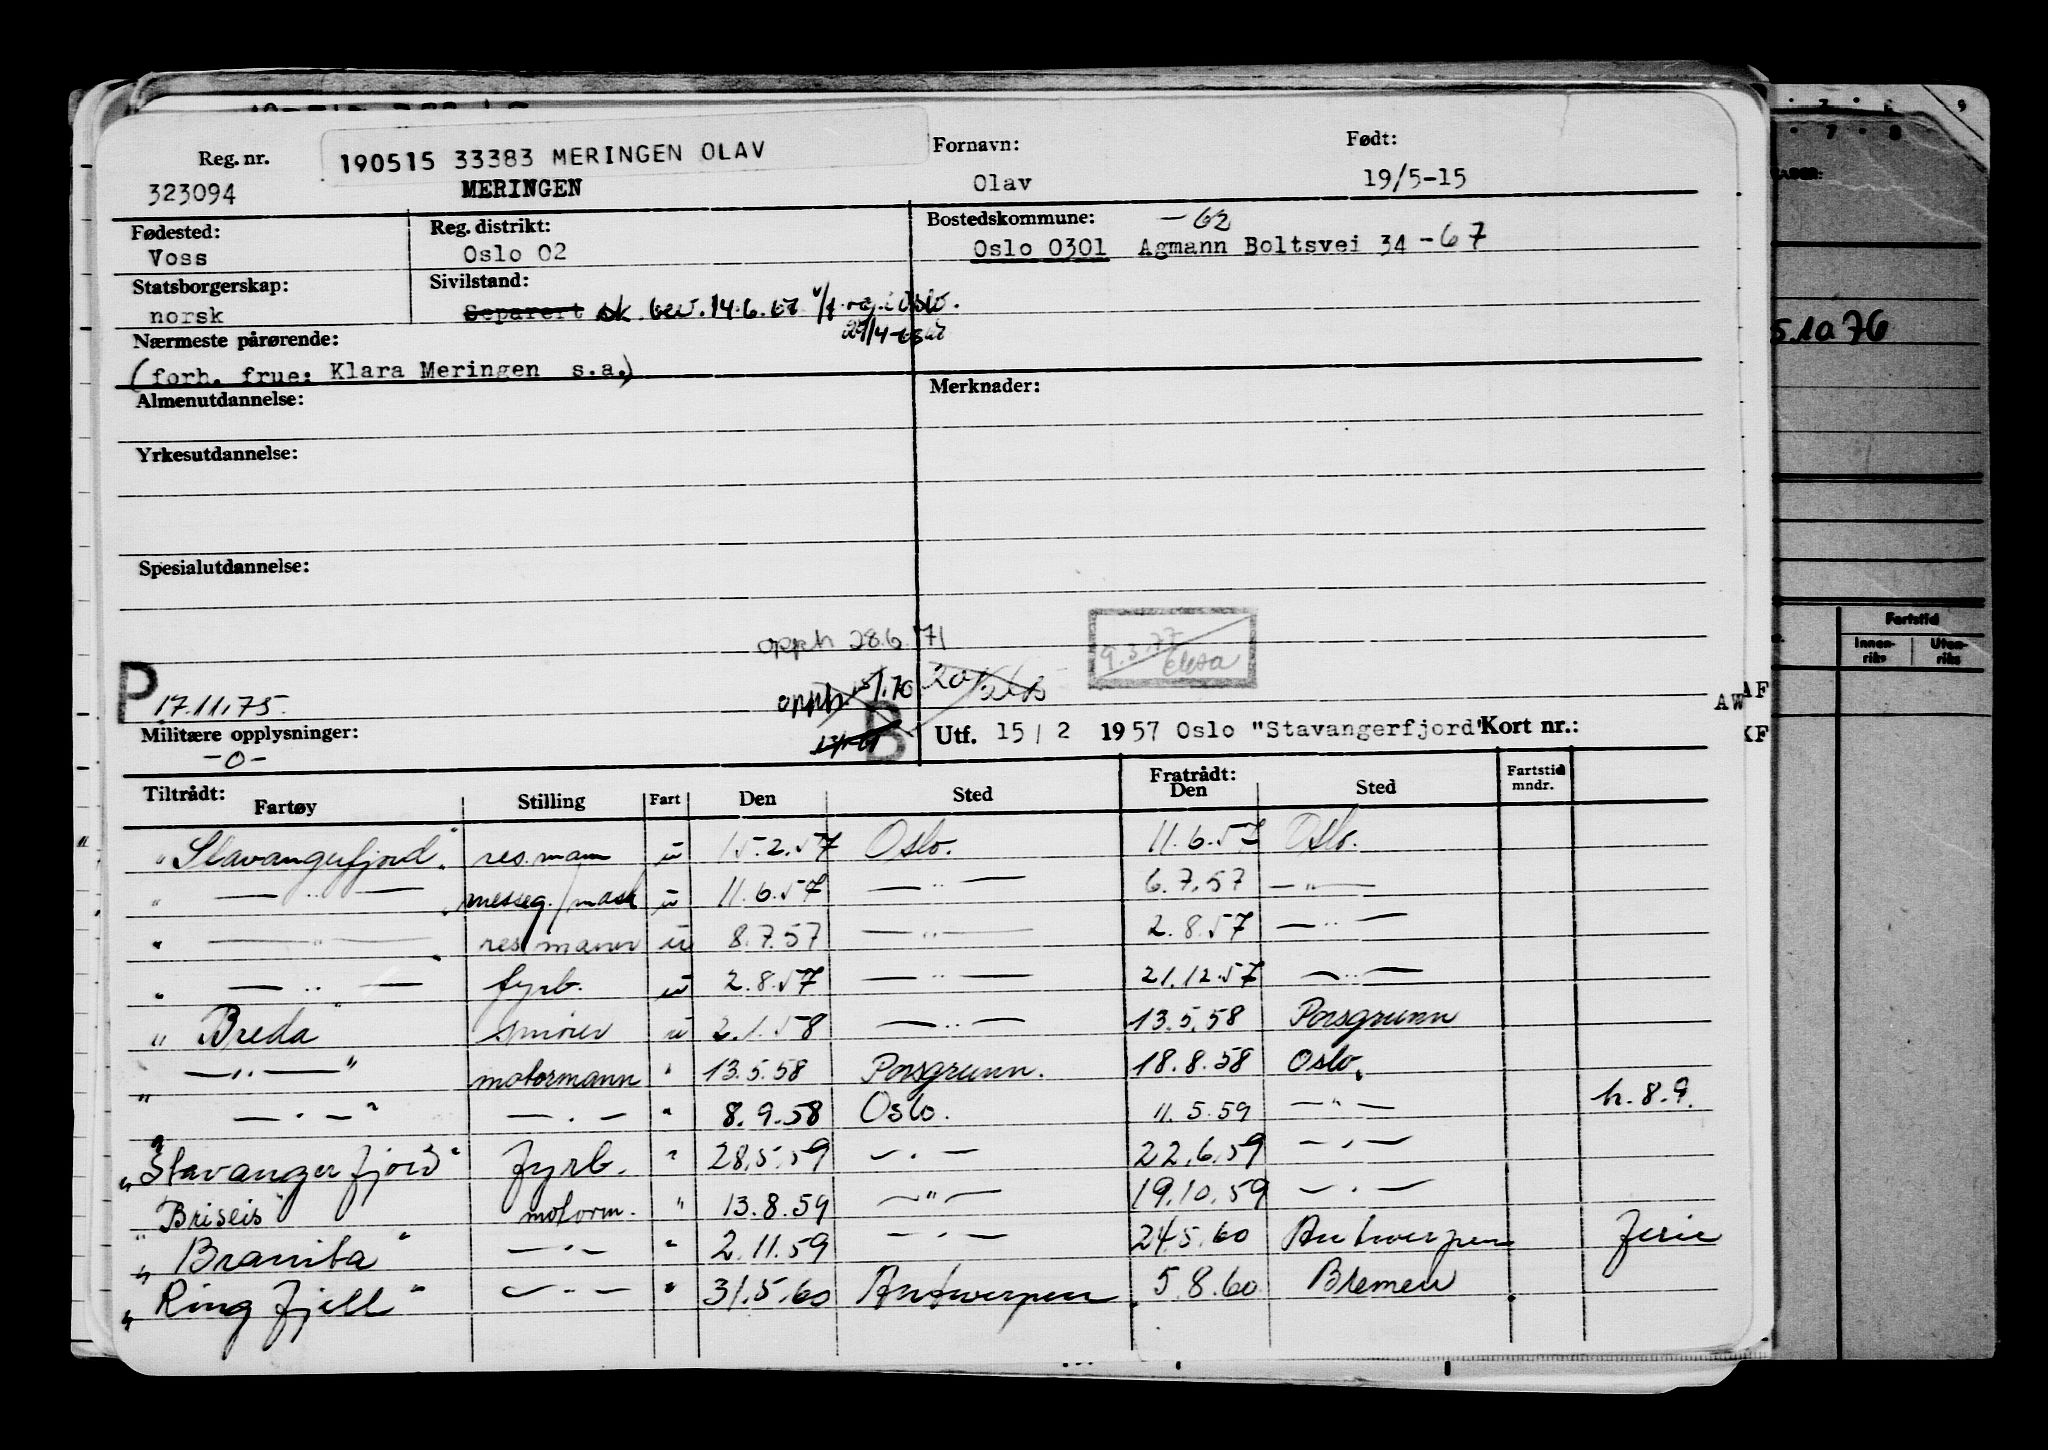 Reg. nr. 190515 33383 MERINGEN OLAV Fornavn: Født:
323094 MERINGEN Olav 19/5-15
Fødested: Reg. distrikt: Bostedskommune: -62
Voss Oslo 02 Oslo 0301 Agmann Boltsvei 34 -67
Statsborgerskap: Sivilstand:
norsk Separert sk. bev. 14.6.67 i Oslo.
Nærmeste pårørende:
(forh. frue: Klara Meringen s.a.)
Almenutdannelse: Merknader:
Yrkesutdannelse:
Spesialutdannelse:
opph 28.6.71 9.3.77
P 17.11.75. opph.
Militære opplysninger: B Utf. 15/2 1957 Oslo "Stavangerfjord" Kort nr.:
-0-
Tiltrådt: Fartøy Stilling Fart Den Sted Fratrådt: Den Sted Fartstid mndr.
"Stavangerfjord" res.mann u 15.2.57 Oslo. 11.6.57 Oslo.
" — " — messeg./mask u 11.6.57 — " — 6.7.57 — " —
" — " — res mann u 8.7.57 — " — 2.8.57 — " —
" — " — fyrb. u 2.8.57 — " — 21.12.57 — " —
"Breda" smører u 2.1.58 — " — 13.5.58 Porsgrunn
" — " — " motormann " 13.5.58 Porsgrunn. 18.8.58 Oslo.
" — " — " — " — " 8.9.58 Oslo. 11.5.59 — " — h.8.9.
"Stavangerfjord" fyrb. " 28.5.59 — " — 22.6.59 — " —
"Briseis" motorm. " 13.8.59 — " — 19.10.59 — " —
"Branita" — " — " 2.11.59 — " — 24.5.60 Antwerpen ferie
"Ringfjell" — " — " 31.5.60 Antwerpen 5.8.60 Bremen
5.10 76
Fartstid
Innenriks Utenriks
AW AF
KF